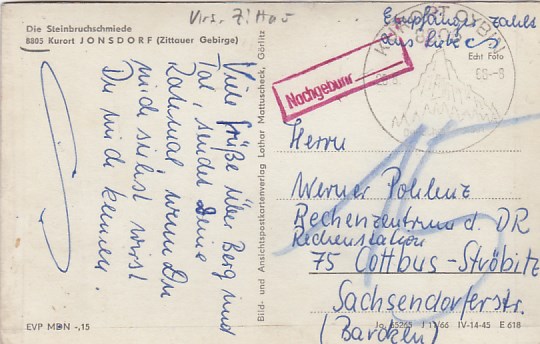 Krs. Zittau
Die Steinbruchschmiede
8805 Kurort JONSDORF (Zittauer Gebirge)
Viele Grüße über Berg und
Tal, sendet Deine
Ratmal wenn Du
mich siehst wirst
Du mich kennen.
EVP MDN -,15
Bild- und Ansichtspostkartenverlag Lothar Mattuscheck, Görlitz
Empfänger zahlt
aus Liebe
KURORT OYBIN
Echt Foto
Nachgebühr
15
Herrn
Werner Pohlenz
Rechenzentrum d. DR
Rechenstation
75 Cottbus-Ströbitz
Sachsendorferstr.
(Baracken)
Jo. 65265 J 11/66 IV-14-45 E 618